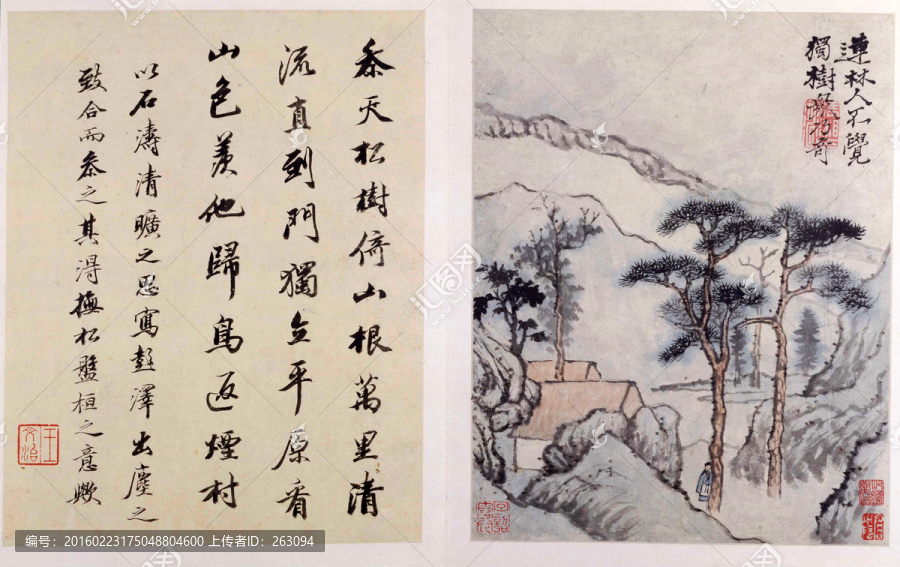 連林人不覺
獨樹衆乃奇
參天松樹倚山根萬里清
流直到門獨立平原看
山色羨他歸鳥返煙村
以石濤清曠之思寫彭澤出塵之
致合而參之其得撫松盤桓之意歟
王文治
编号:20160223175048804600 上传者ID:263094